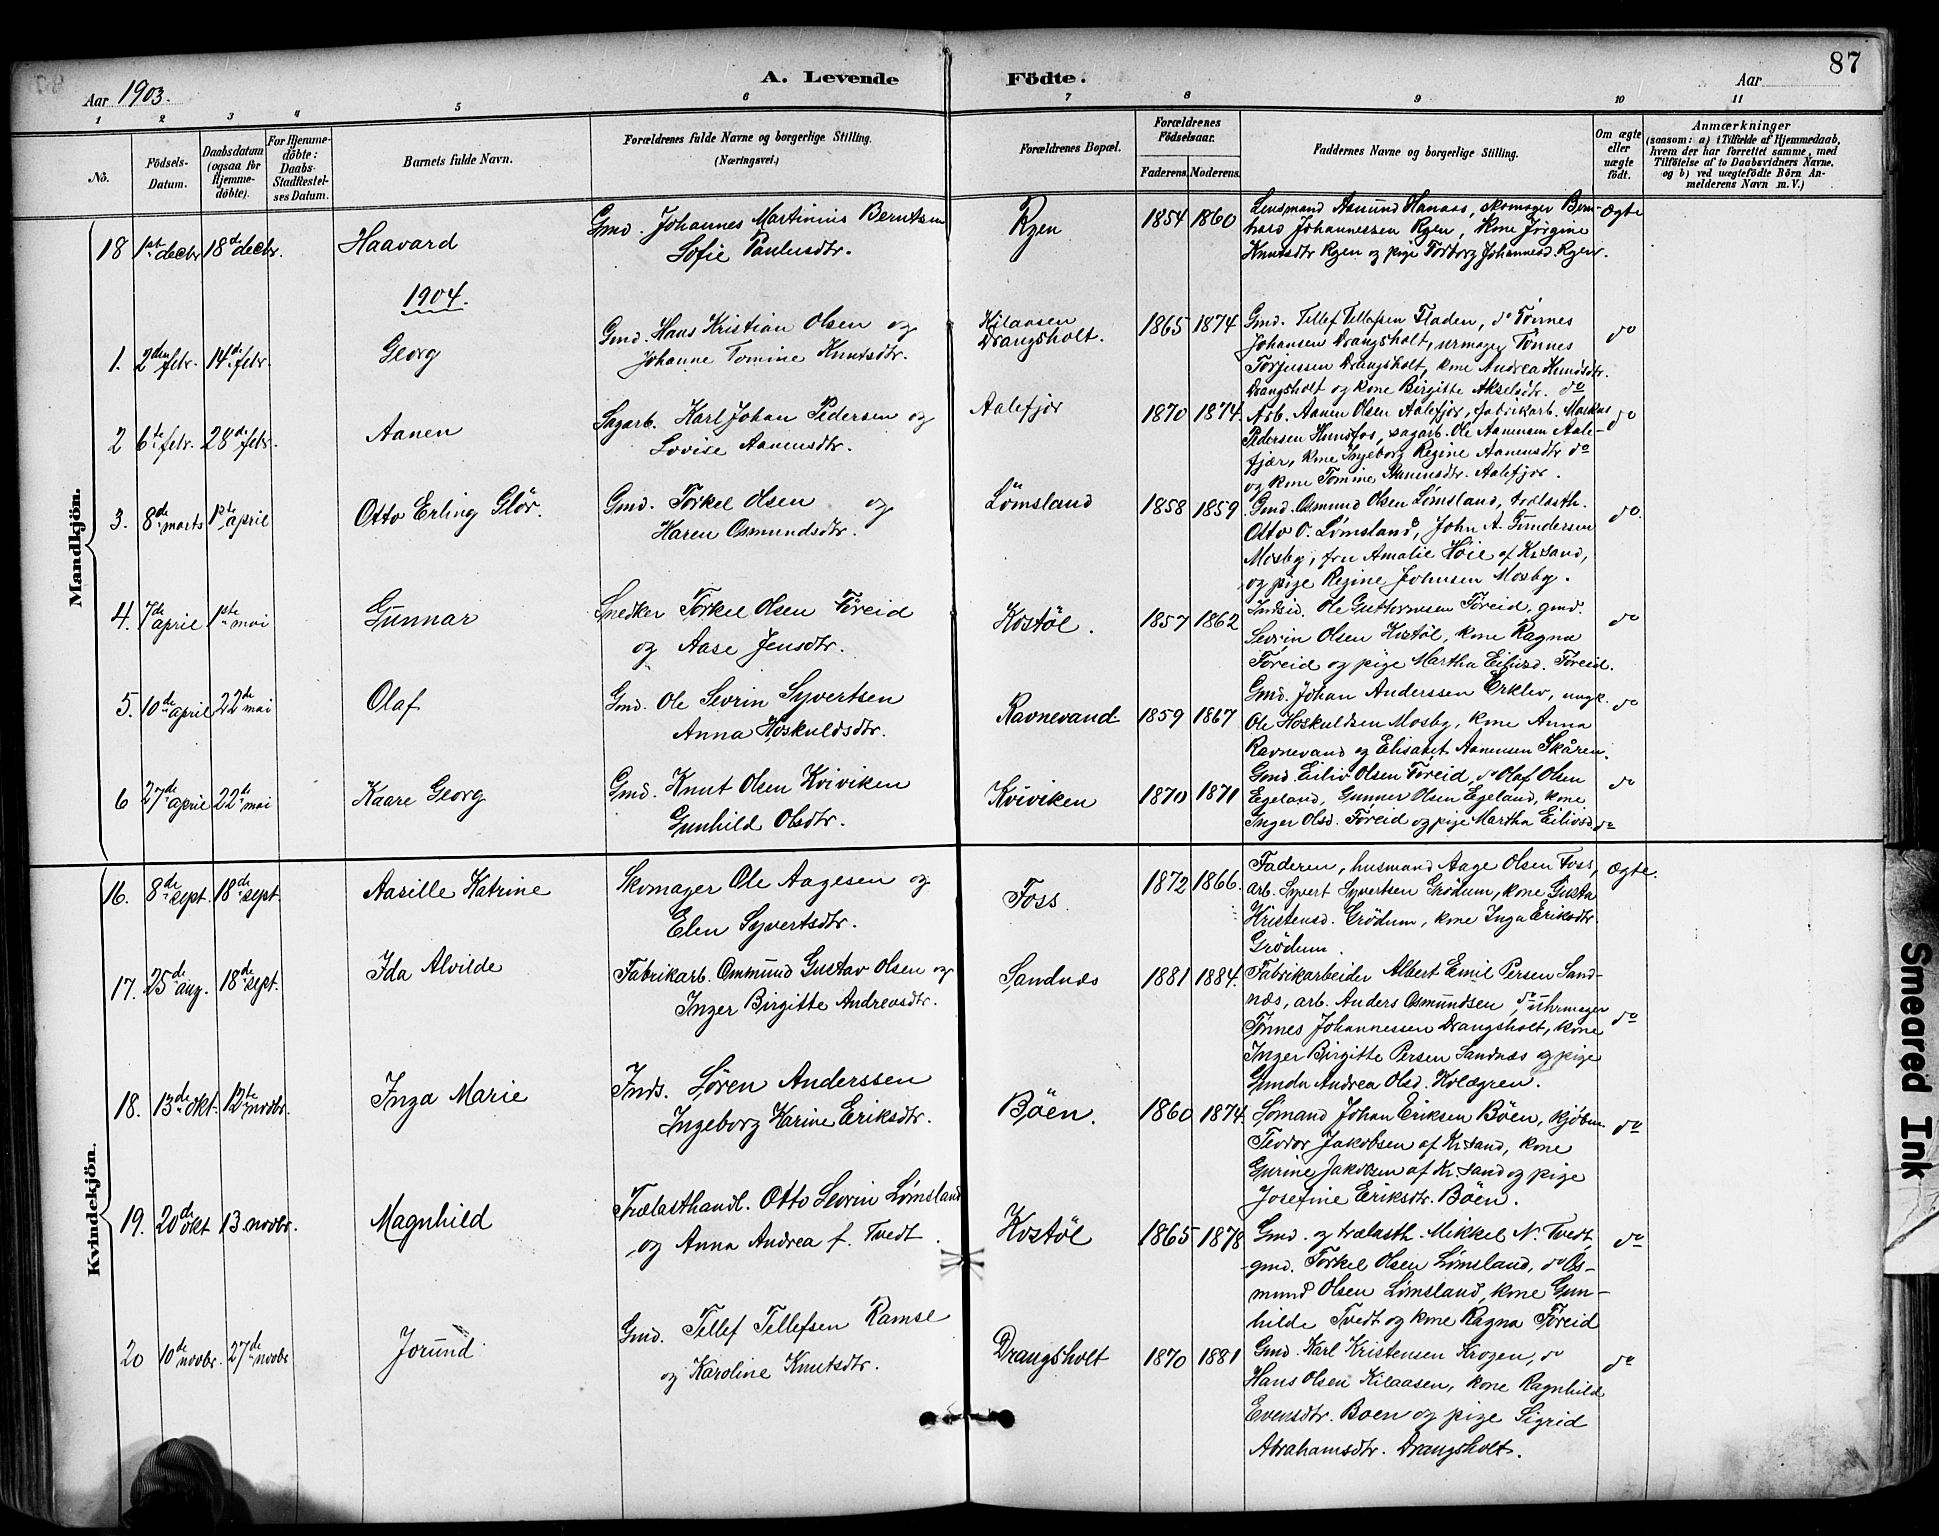 87
A. Levende Födte.
Aar 1903. Aar
1 2 3 4 5 6 7 8 9 10 11
No.
Födsels-
Datum.
Daabsdatum
(ogsaa for
Hjemme-
döbte).
For Hjemme-
döbte:
Daabs-
Stadfestel-
ses Datum.
Barnets fulde Navn.
Forældrenes fulde Navne og borgerlige Stilling.
(Næringsvei.)
Forældrenes Bopæl.
Forældrenes
Födselsaar.
Faderens. Moderens.
Faddernes Navne og borgerlige Stilling.
Om ægte
eller
uægte
födt.
Anmærkninger
(saasom: a) i Tilfælde af Hjemmedaab,
hvem der har forrettet samme, med
Tilföielse af to Daabsvidners Navne,
og b) ved uægtefödte Börn An-
melderens Navn m. V.)
Mandkjön.
18 1ste decbr 18de decbr. Haavard
Gmd. Johannes Martinius Berntsen
Sofie Paulusdtr.
Ryen 1854 1860
Lensmand Aanund Hanaas, skomager Bern-
hard Johannessen Ryen, kone Jørgine
Knutsdtr Ryen og pige Torborg Johannesd. Ryen.
Ægte
1904.
1. 2den febr. 14de febr. Georg
Gmd. Hans Kristian Olsen og
Johanne Tomine Knutsdtr.
Kilaasen
Drangsholt. 1865 1874
Gmd. Tellef Tellefsen Fladen, do Tønnes
Johansen Drangsholt, urmager Tønnes
Torjussen Drangsholt, kone Andrea Knudsdtr.
Drangsholt og kone Birgitte Akselsdtr. do
do
2 6te febr. 28de febr. Aanen
Sagarb. Karl Johan Pedersen og
Lovise Aanensdtr.
Aalefjør 1870 1874.
Arb. Aanen Olsen Aalefjør, fabrikarb. Markus
Pedersen Hunsfos, sagarb. Ole Aanensen Aale-
fjær, kone Ingeborg Regine Aanensdtr do
og kone Tomine Aanensdtr. Aalefjør.
do
3. 8de marts 1ste april Otto Erling Glör.
Gmd. Torkel Olsen og
Karen Osmundsdtr.
Lømsland 1858 1859
Gmd. Osmund Olsen Lømsland, trælasth.
Otto O. Lømsland, John A. Gundersen
Mosby, fru Amalie Høie af Kr.sand,
og pige Regine Johnsen Mosby.
do.
4. 7de april 1ste mai Gunnar
Snedker Torkel Olsen Føreid
og Aase Jensdtr.
Kostøl. 1857 1862
Inds. Ole Guttormsen Føreid, gmd.
Sevrin Olsen Kostøl, kone Ragna
Føreid og pige Martha Eilivsd. Føreid.
do
5. 10de april 22de mai Olaf
Gmd. Ole Sevrin Syvertsen
Anna Hoskuldsdtr.
Ravnevand 1859 1867
Gmd. Johan Anderssen Erklev, ungk.
Ole Hoskuldsen Mosby, kone Anna
Ravnevand og Elisabet Aanensen Skåren.
do
6 27de april 22de mai Kaare Georg
Gmd. Knut Olsen Kviviken
Gunhild Olsdtr.
Kviviken 1870 1871
Gmd. Eiliv Olsen Føreid, do Olaf Olsen
Egeland, Gunner Olsen Egeland, kone
Inger Olsd. Føreid og pige Martha Eilivsd do
do
Kvindekjön.
16. 8de sept. 18de sept. Aasille Katrine
Skomager Ole Aagesen og
Elen Syvertsdtr.
Foss. 1872 1866.
Faderen, husmand Aage Olsen Foss,
arb. Syvert Syvertsen Grödum, kone Gusta
Kristensd. Grödum, kone Inga Eriksdtr
Grödum.
Ægte.
17. 25de aug. 18de sept. Ida Alvilde
Fabrikarb. Ommund Gustav Olsen og
Inger Birgitte Andreasdtr.
Sandnæs 1881 1884.
Fabrikarbeider Albert Emil Persen Sand-
næs, arb. Anders Osmundsen, do uhrmager
Tønnes Johannessen Drangsholt, kone
Inger Birgitte Persen Sandnæs og pige
Gunda Andrea Olsd. Kvægren.
do
18. 13de okt. 12te novbr. Inga Marie
Inds. Søren Anderssen
Ingeborg Karine Eriksdtr.
Böen. 1860 1874.
Sømand Johan Eriksen Böen, kjøbm.
Teodor Jakobsen af Kr.sand, kone
Gurine Jakobsen af Kr.sand og pige
Josefine Eriksdtr. Böen.
do
19. 20de okt 13 novbr. Magnhild
Trælasthandl. Otto Sevrin Lømsland
og Anna Andrea f. Tvedt.
Kostøl 1865 1878
Gmd. og trælasth. Mikkel N. Tvedt,
gmd. Torkel Olsen Lømsland, do Os-
mund Olsen Lømsland, kone Gun-
hilde Tvedt og kone Ragna Føreid
do
20 10de novbr. 27de novbr Jorund
Gmd. Tellef Tellefsen Ramse
og Karoline Knutsdtr.
Drangsholt 1870 1881
Gmd. Karl Kristensen Krogen, do
Hans Olsen Kilaasen, kone Ragnhild
Evensdtr. Boen og pige Sigrid
Abrahamsdtr. Drangsholt.
do
Smeared Ink